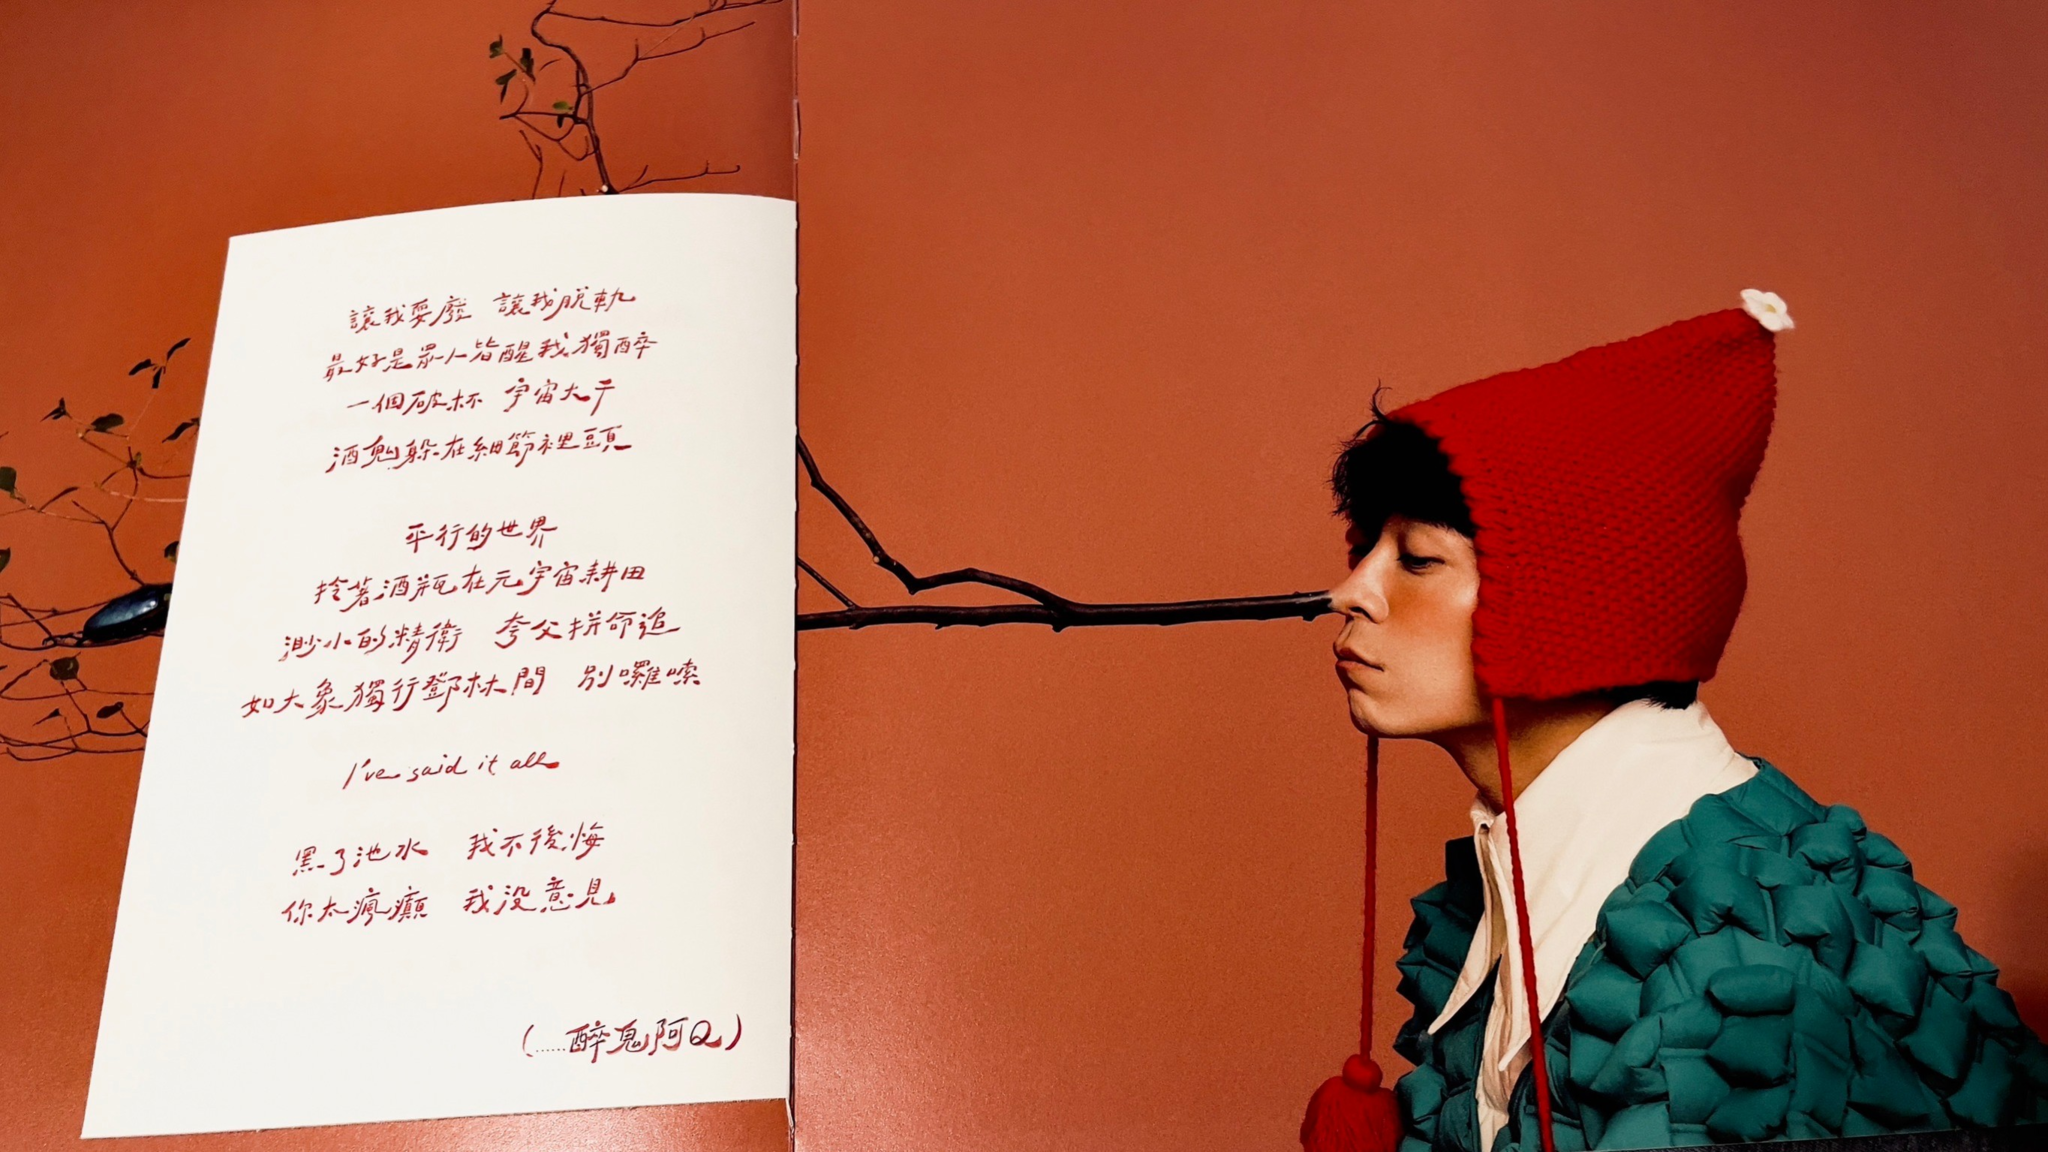 讓我耍廢　讓我脫軌
最好是眾人皆醒我獨醉
一個破杯　宇宙大千
酒鬼躲在細節裡頭
平行的世界
拎著酒瓶在元宇宙耕田
渺小的精衛　夸父拼命追
如大象獨行鄧林間　別囉嗦
I've said it all
黑了池水　我不後悔
你太瘋癲　我沒意見
(......醉鬼阿Q)